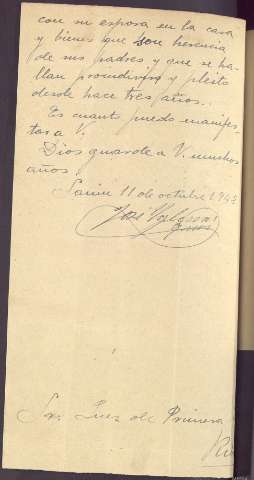 con su esposa en la casa
y bienes que son herencia
de sus padres y que se ha-
llan proindiviso y pleito
desde hace tres años.
Es cuanto puedo manifes-
tar a V.
Dios guarde a V. muchos
años
11 de octubre 194
José
Sr. Juez de Primera